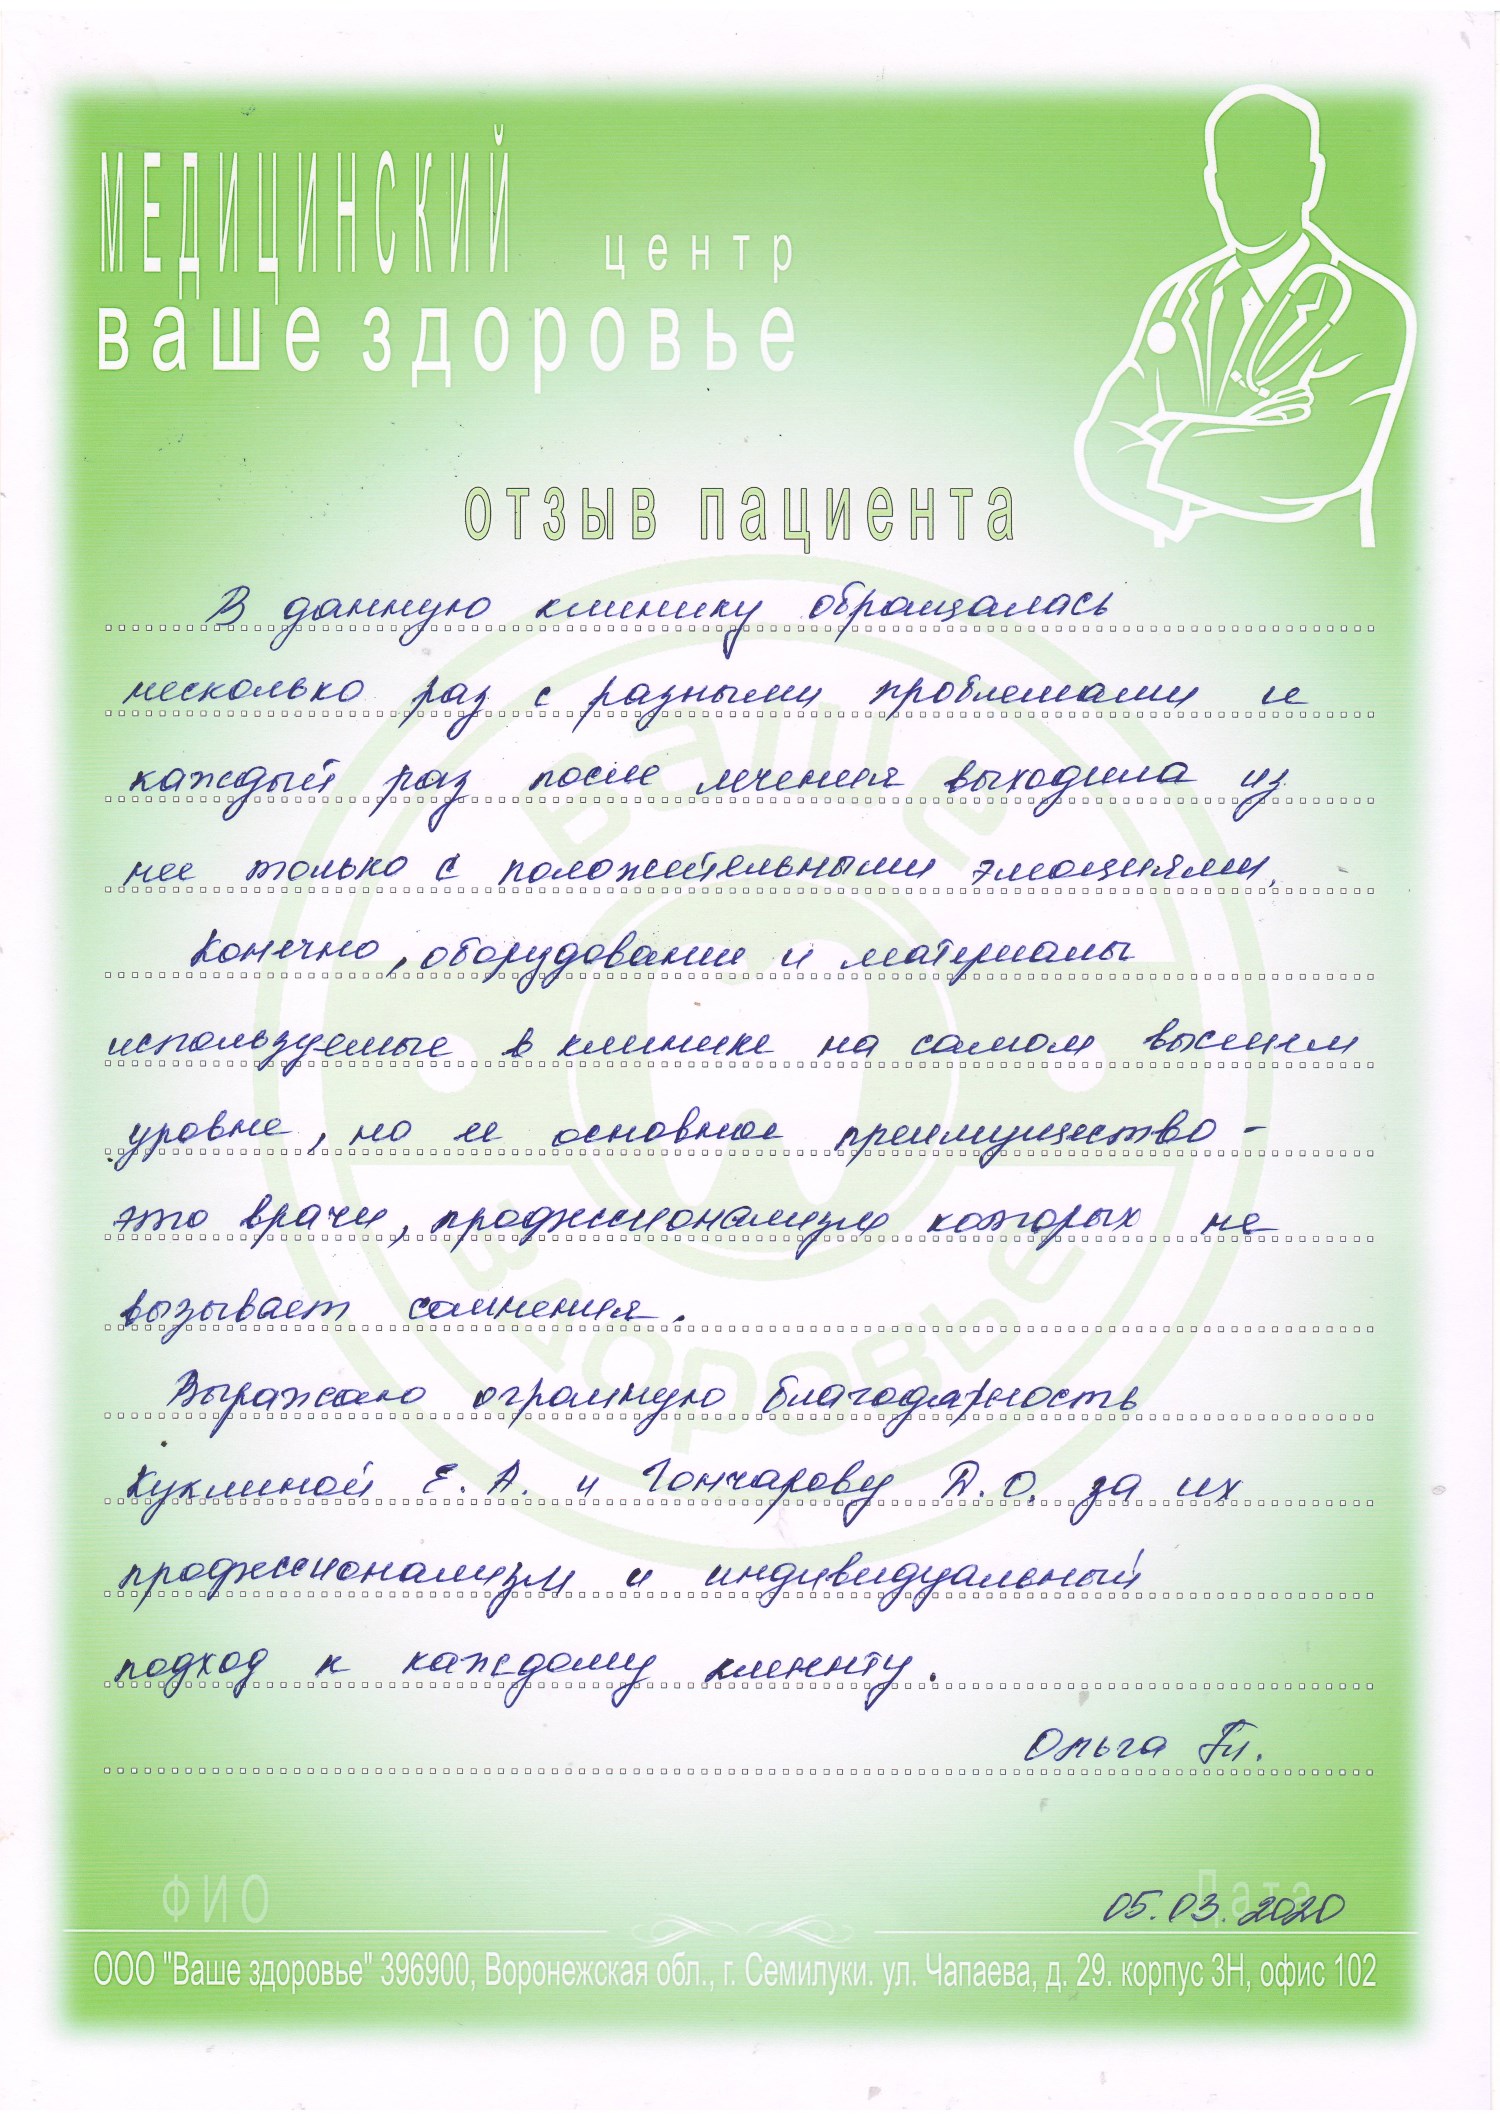 МЕДИЦИНСКИЙ центр
ваше здоровье
отзыв пациента
В данную клинику обращалась
несколько раз с разными проблемами и
каждый раз после лечения выходила из
нее только с положительными эмоциями.
Конечно, оборудование и материалы
используемые в клинике на самом высшем
уровне, но ее основное преимущество -
это врачи, профессионализм которых не
вызывает сомнения.
Выражаю огромную благодарность
Куклиной Е. А. и Гончарову Д. О. за их
профессионализм и индивидуальный
подход к каждому клиенту.
Ольга Гл.
ФИО
Дата
05.03.2020
ООО "Ваше здоровье" 396900, Воронежская обл., г. Семилуки. ул. Чапаева, д. 29. корпус 3Н, офис 102
ваше
здоровье